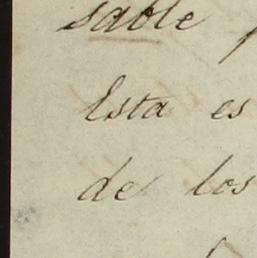 sable
Esta es
de los